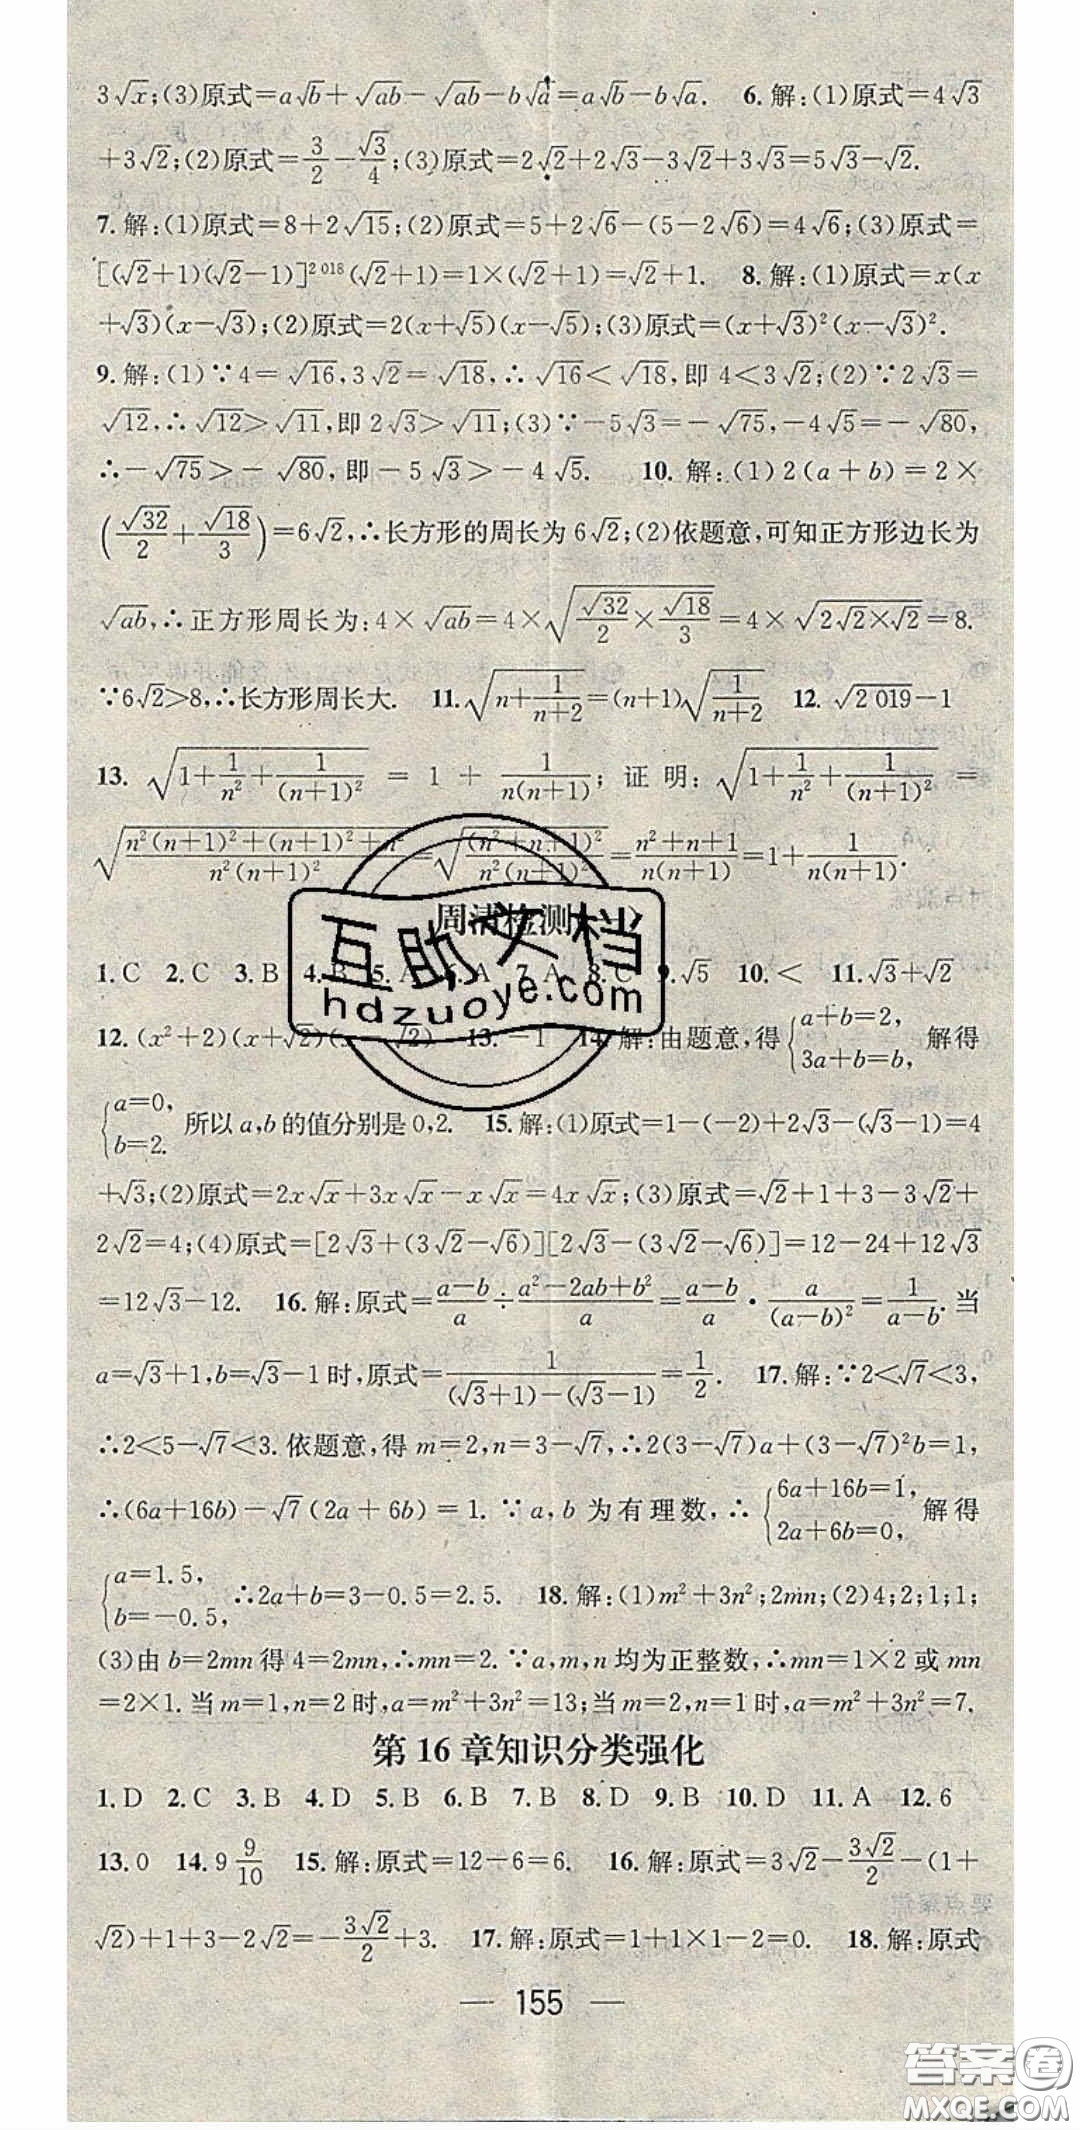 3√x;(3)原式=a√b+√ab-√ab-b√a=a√b-b√a. 6.解:(1)原式=4√3
+3√2;(2)原式=3/2-√3/4;(3)原式=2√2+2√3-3√2+3√3=5√3-√2.
7.解:(1)原式=8+2√15;(2)原式=5+2√6-(5-2√6)=4√6;(3)原式=
[(√2+1)(√2-1)]²⁰¹⁸(√2+1)=1×(√2+1)=√2+1. 8.解:(1)原式=x(x
+√3)(x-√3);(2)原式=2(x+√5)(x-√5);(3)原式=(x+√3)²(x-√3)².
9.解:(1)∵4=√16,3√2=√18,∴√16<√18,即4<3√2;(2)∵2√3=
√12,∴√12>√11,即2√3>√11;(3)∵-5√3=-√75,-4√5=-√80,
∴-√75>-√80,即-5√3>-4√5. 10.解:(1)2(a+b)=2×
(√32/2+√18/3)=6√2,∴长方形的周长为6√2;(2)依题意,可知正方形边长为
√ab,∴正方形周长为:4×√ab=4×√(√32/2×√18/3)=4×√(2√2×√2)=8.
∵6√2>8,∴长方形周长大. 11.√(n+1/(n+2))=(n+1)√(1/(n+2)) 12.√2 019-1
13.√(1+1/n²+1/(n+1)²)=1+1/(n(n+1));证明:√(1+1/n²+1/(n+1)²)=
√((n²(n+1)²+(n+1)²+n²)/(n²(n+1)²))=√((n²+n+1)²/(n²(n+1)²))=(n²+n+1)/(n(n+1))=1+1/(n(n+1)).
周清检测
1.C 2.C 3.B 4.B 5.A 6.A 7.A 8.C 9.√5 10.< 11.√3+√2
12.(x²+2)(x+√2)(x-√2) 13.-1 14.解:由题意,得{a+b=2, 3a+b=b, 解得
{a=0, b=2. 所以a,b的值分别是0,2. 15.解:(1)原式=1-(-2)+2√3-(√3-1)=4
+√3;(2)原式=2x√x+3x√x-x√x=4x√x;(3)原式=√2+1+3-3√2+
2√2=4;(4)原式=[2√3+(3√2-√6)][2√3-(3√2-√6)]=12-24+12√3
=12√3-12. 16.解:原式=(a-b)/a÷(a²-2ab+b²)/a=(a-b)/a·a/(a-b)²=1/(a-b).当
a=√3+1,b=√3-1时,原式=1/((√3+1)-(√3-1))=1/2. 17.解:∵2<√7<3,
∴2<5-√7<3.依题意,得m=2,n=3-√7,∴2(3-√7)a+(3-√7)²b=1,
∴(6a+16b)-√7(2a+6b)=1.∵a,b为有理数,∴{6a+16b=1, 2a+6b=0, 解得
{a=1.5, b=-0.5, ∴2a+b=3-0.5=2.5. 18.解:(1)m²+3n²;2mn;(2)4;2;1;1;
(3)由b=2mn得4=2mn,∴mn=2.∵a,m,n均为正整数,∴mn=1×2或mn
=2×1.当m=1,n=2时,a=m²+3n²=13;当m=2,n=1时,a=m²+3n²=7.
第16章知识分类强化
1.D 2.C 3.B 4.D 5.B 6.B 7.B 8.D 9.B 10.D 11.A 12.6
13.0 14.9 9/10 15.解:原式=12-6=6. 16.解:原式=3√2-3√2/2-(1+
√2)+1+3-2√2=-3√2/2+3. 17.解:原式=1+1×1-2=0. 18.解:原式
— 155 —
互助文档
hdzuoye.com
答案圈
MXQE.COM